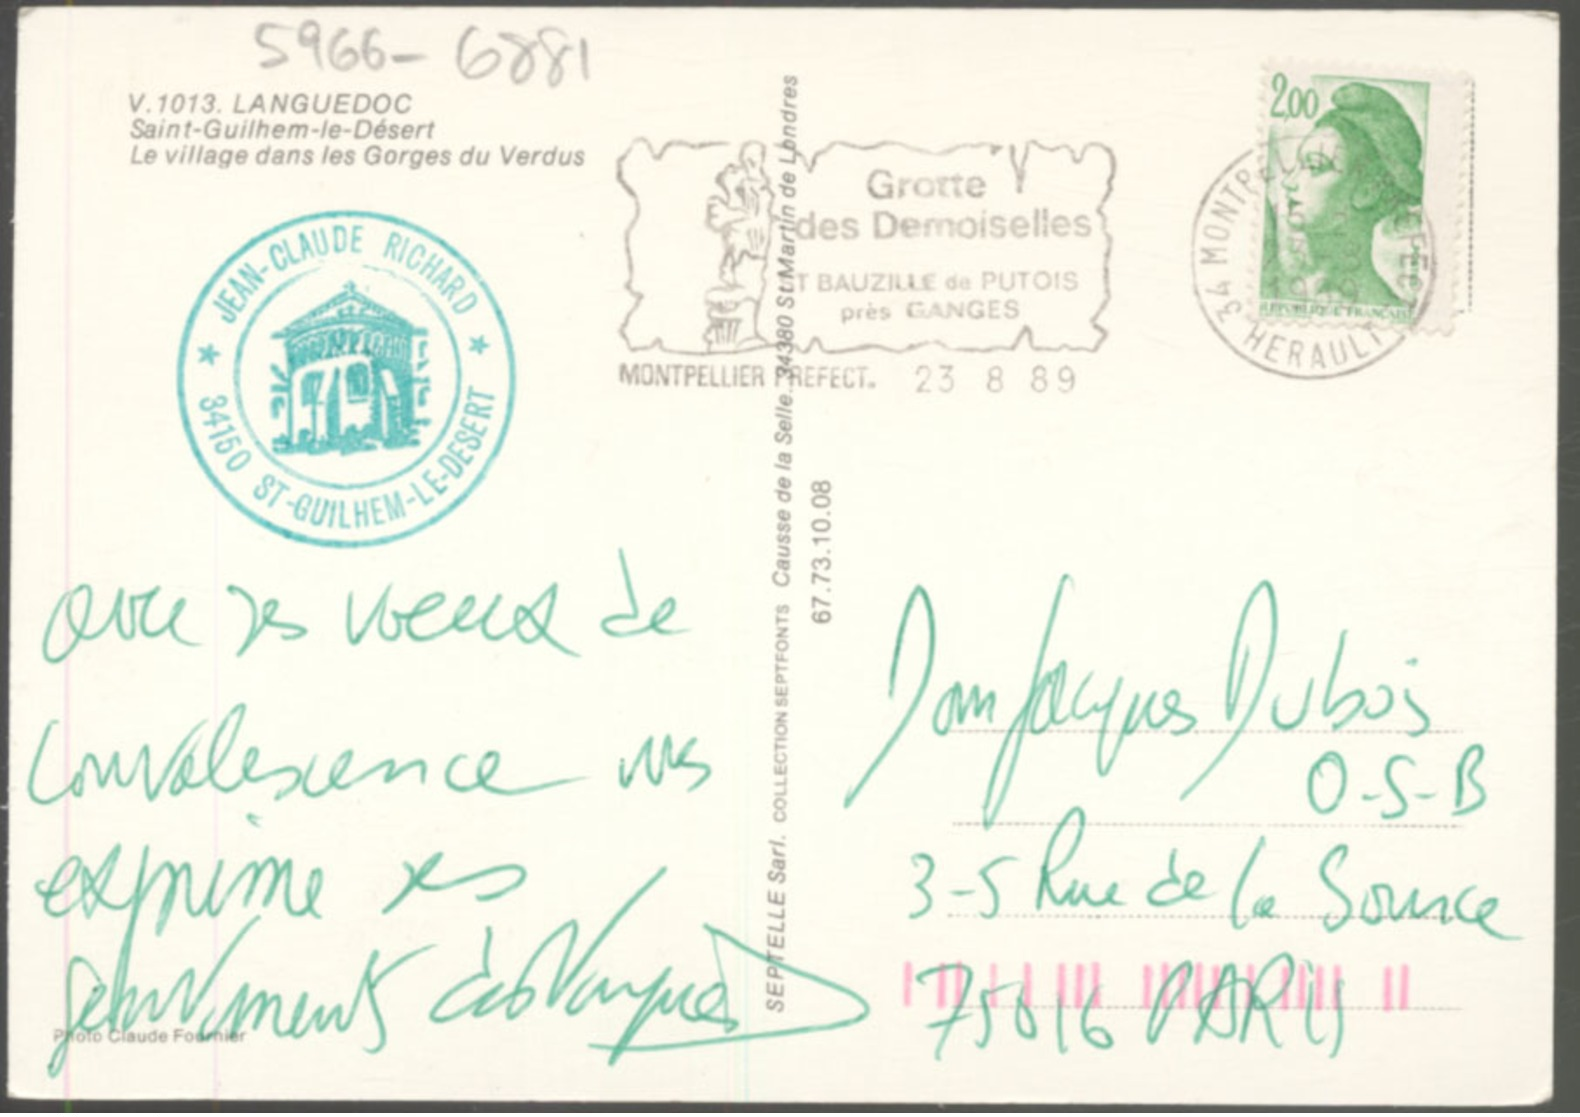 5966-6881
V.1013. LANGUEDOC
Saint-Guilhem-le-Désert
Le village dans les Gorges du Verdus
JEAN-CLAUDE RICHARD
34150 ST-GUILHEM-LE-DESERT
avec ses voeux de
convalescence vous
exprime ses
sentiments
Photo Claude Fournier
SEPTELLE Sarl. COLLECTION SEPTFONTS Causse de la Selle. 34380 St Martin de Londres
67.73.10.08
Grotte
des Demoiselles
ST BAUZILLE de PUTOIS
près GANGES
MONTPELLIER PREFECT. 23 8 89
2,00
REPUBLIQUE FRANÇAISE
34 MONTPELLIER
HERAULT
Dom Jacques Dubois
O-S-B
3-5 Rue de la Source
75016 PARIS